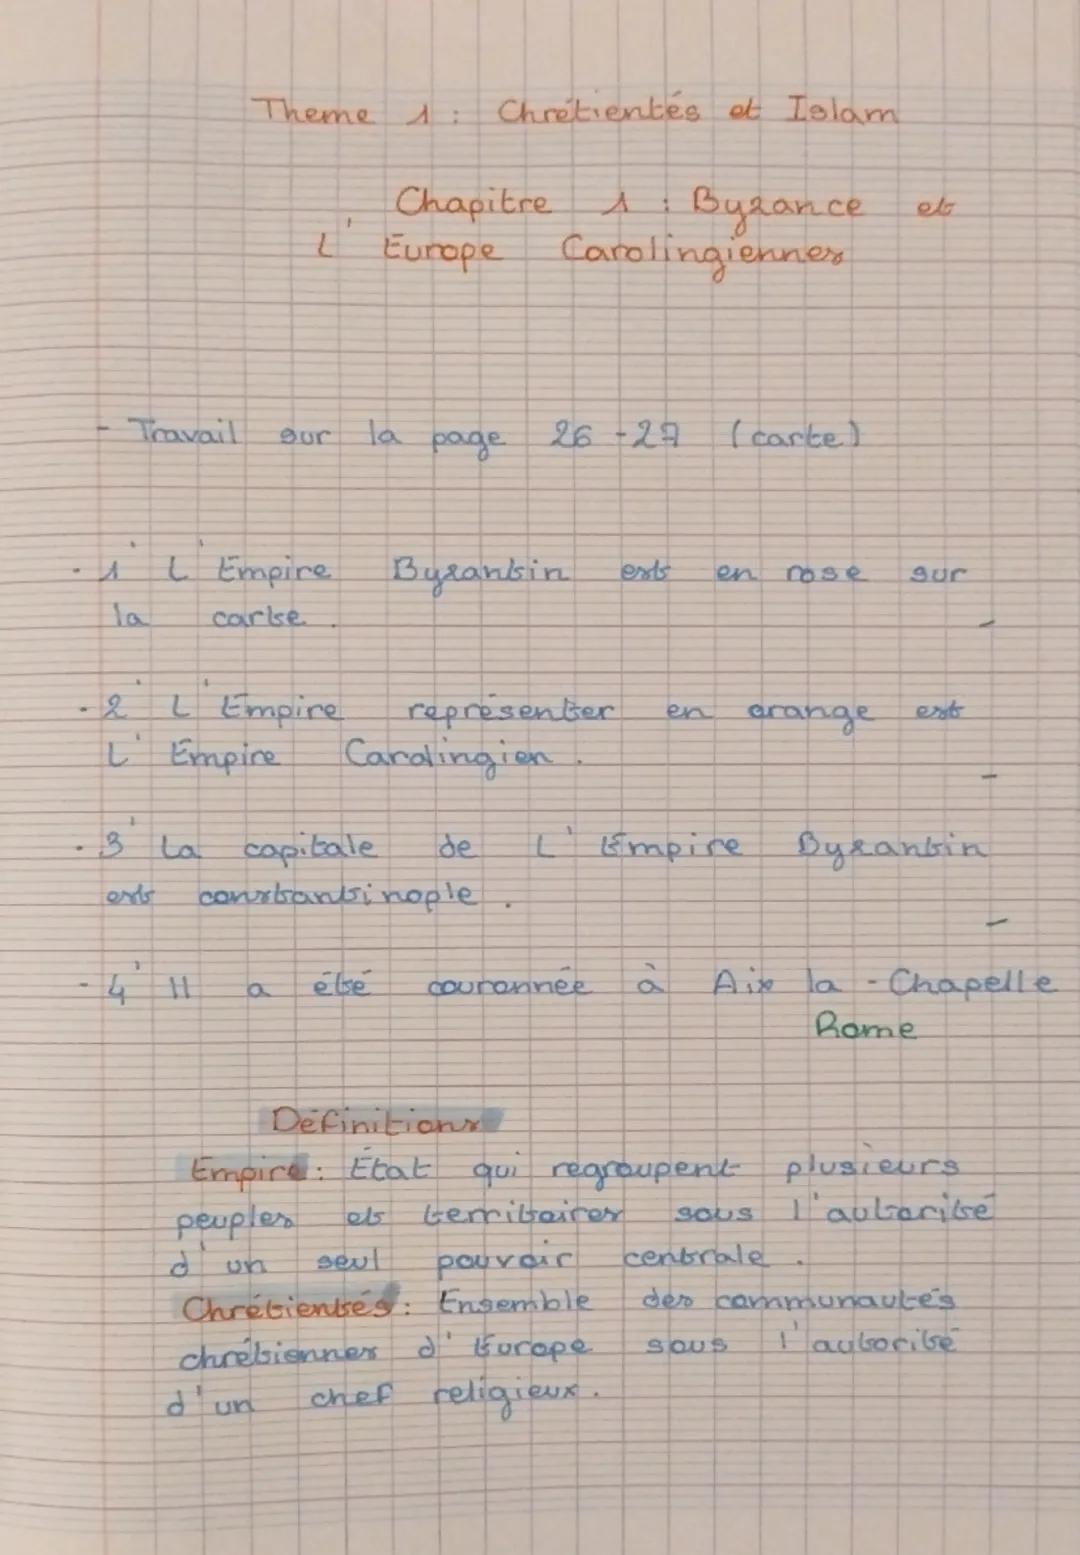 Theme 1 : Chrétientés et Islam
Chapitre 1 : Byzance et
L'Europe Carolingiennes
- Travail sur la page 26-27 (carte)
- 1' L'Empire Byzantin est en rose sur
la carte.
- 2' L'Empire représenter en orange est
L'Empire Carolingien.
- 3' La capitale de L'Empire Byzantin
est constantinople.
- 4' Il a été couronnée à Aix la-Chapelle
Rome
Définitions
Empire : État qui regroupent plusieurs
peuples et territoires sous l'autorité
d'un seul pouvoir centrale.
Chrétientés : Ensemble des communautés
chrétiennes d'Europe sous l'autorité
d'un chef religieux.